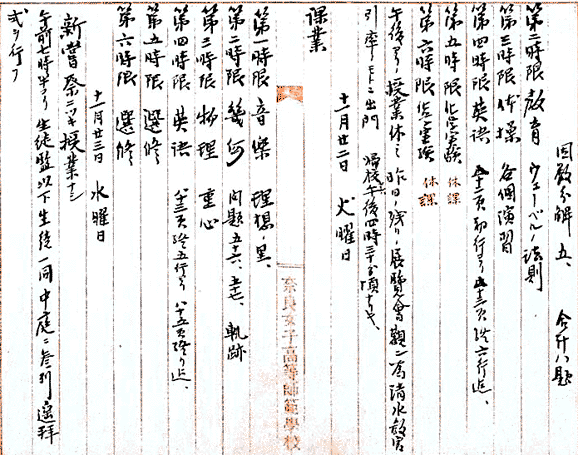 因数分解 五、 合計八題
第二時限 教育 ウェーベル法則
第三時限 体操 各個演習
第四時限 英語 五十二頁初行ヨリ五十三頁終六行迄、
第五時限 化学実験 休課
第六時限 仝実験 休課
午後ヨリ授業休ミ昨日ノ残リノ展覧会観ノ為清水教官
引率ノモトニ出門 帰校午後四時三十分頃ナリキ、
十一月廿二日 火曜日
課業
第一時限 音楽 理想ノ里、
第二時限 幾何 問題五十六、五十七、 軌跡
第三時限 物理 重心
第四時限 英語 八十三頁終五行ヨリ八十五頁終リ迄、
第五時限 選修
第六時限 選修
十一月廿三日 水曜日
新嘗祭ニツキ授業ナシ
午前七時半ヨリ生徒監以下生徒一同中庭ニ参列遥拝
式ヲ行フ
奈良女子高等師範学校